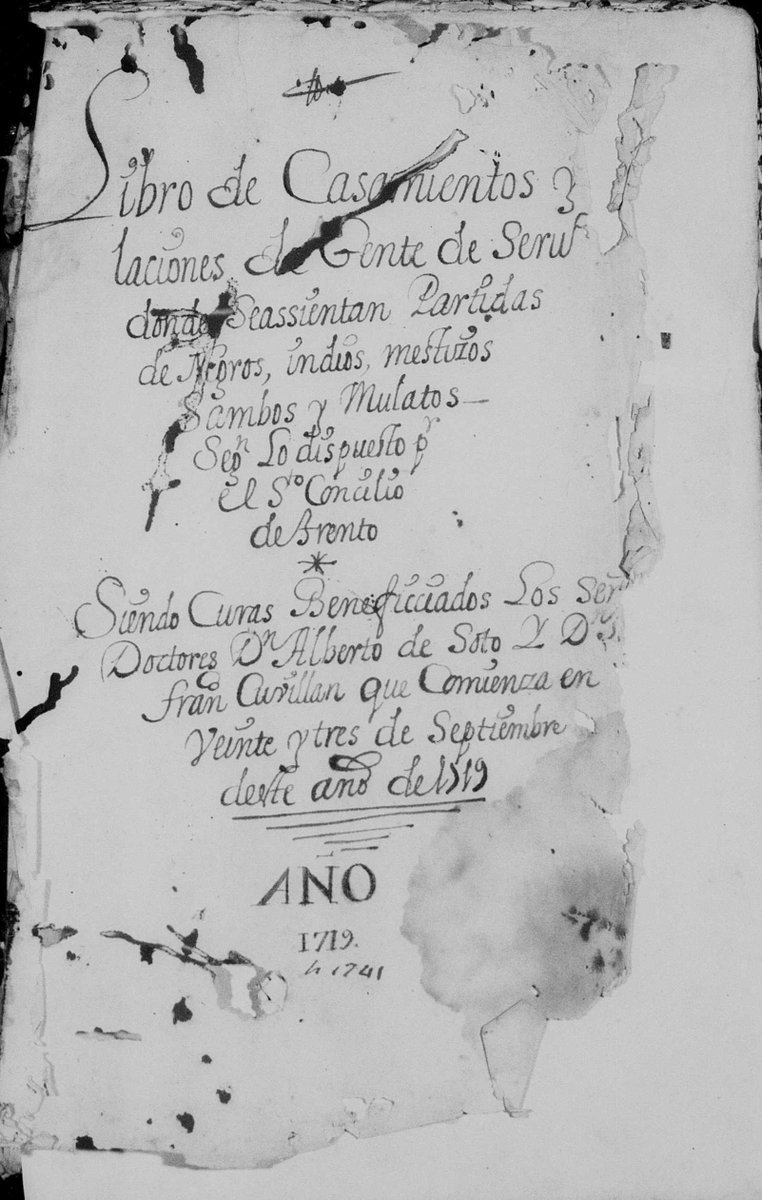 Libro de Casamientos y
laciones de Gente de Seru
donde Seassientan Partidas
de Negros, indios, mestizos
Sambos y Mulatos
Segn Lo dispuesto pr
el Sto Concilio
de trento
Siendo Curas Beneficciados Los Señ
Doctores Dn Alberto de Soto Y Dn
fran Cuvillan que Comienza en
Veinte y tres de Septiembre
deste año de 1719
AÑO
1719.
h 1741